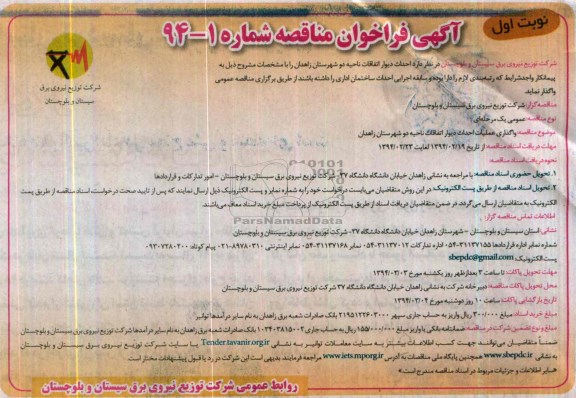 نوبت اول
آگهی فراخوان مناقصه شماره ۱-۹۴
شرکت توزیع نیروی برق
سیستان و بلوچستان
شرکت توزیع نیروی برق سیستان و بلوچستان در نظر دارد احداث دیوار اتفاقات ناحیه دو شهرستان زاهدان را با مشخصات مشروح ذیل به
پیمانکار واجد شرایط که رتبه‌بندی لازم را دارا بوده و سابقه اجرایی احداث ساختمان اداری را داشته باشند از طریق برگزاری مناقصه عمومی
واگذار نماید.
مناقصه‌گزار: شرکت توزیع نیروی برق سیستان و بلوچستان
نوع مناقصه: عمومی یک مرحله‌ای
موضوع مناقصه: واگذاری عملیات احداث دیوار اتفاقات ناحیه دو شهرستان زاهدان
مهلت دریافت اسناد مناقصه: از تاریخ ۱۳۹۴/۰۲/۱۹ لغایت ۱۳۹۴/۰۲/۲۳
نحوه دریافت اسناد مناقصه:
۱. تحویل حضوری اسناد مناقصه: با مراجعه به نشانی زاهدان خیابان دانشگاه دانشگاه ۳۷ شرکت توزیع نیروی برق سیستان و بلوچستان - امور تدارکات و قراردادها
۲. تحویل اسناد مناقصه از طریق پست الکترونیک: در این روش متقاضیان می‌بایست درخواست خود را به شماره نمابر و پست الکترونیک ذیل ارسال نمایند که پس از تایید صحت درخواست اسناد مناقصه از طریق پست
الکترونیک به متقاضیان ارسال می‌گردد. در ضمن متقاضیان دریافت اسناد از طریق پست الکترونیک از پرداخت مبلغ خرید اسناد معاف می‌باشند.
اطلاعات تماس مناقصه گزار:
نشانی: استان سیستان و بلوچستان - شهرستان زاهدان خیابان دانشگاه دانشگاه ۳۷- شرکت توزیع نیروی برق سیستان و بلوچستان
شماره نمابر اداره قراردادها ۳۱۱۳۷۱۵۵-۰۵۴ اداره تدارکات ۳۱۱۳۷۰۱۲-۰۵۴ نمابر ۳۱۱۳۷۱۶۸-۰۵۴ نمابر اینترنتی ۸۹۷۸۰۳۱۰-۰۲۱ پیام کوتاه ۰۹۳۰۷۲۸۰۲۰۰
پست الکترونیک: sbepdc@gmail.com
مهلت تحویل پاکات: تا ساعت ۳ بعدازظهر روز یکشنبه مورخ ۱۳۹۴/۰۳/۰۳
محل تحویل پاکات مناقصه: دبیرخانه شرکت به نشانی زاهدان خیابان دانشگاه دانشگاه ۳۷ شرکت توزیع نیروی برق سیستان و بلوچستان
تاریخ بازگشایی پاکات: ساعت ۱۰ روز دوشنبه مورخ ۱۳۹۴/۰۳/۰۴
مبلغ خرید اسناد: مبلغ ۳۰۰/۰۰۰ ریال واریز به حساب جاری سپهر بانک صادرات شعبه برق زاهدان به نام سایر درآمدها توانیر
مبلغ و نوع تضمین شرکت در مناقصه: ضمانتنامه بانکی یا واریز مبلغ ۱۵۵/۰۰۰/۰۰۰ ریال به حساب جاری بانک صادرات شعبه برق زاهدان به نام سایر درآمدها شرکت توزیع نیروی برق سیستان و بلوچستان
ضمناً متقاضیان می‌توانند جهت کسب اطلاعات بیشتر به سایت معاملات توانیر به نشانی Tender.tavanir.org.ir یا سایت شرکت توزیع نیروی برق سیستان و بلوچستان
به نشانی www.sbepdc.ir همچنین پایگاه ملی مناقصات به آدرس www.iets.mporg.ir مراجعه فرمایند. بدیهی است این شرکت در رد یا قبول پیشنهادات مختار است.
«سایر اطلاعات و جزئیات مربوط در اسناد مناقصه مندرج است.»
روابط عمومی شرکت توزیع نیروی برق سیستان و بلوچستان
ParsNamadData